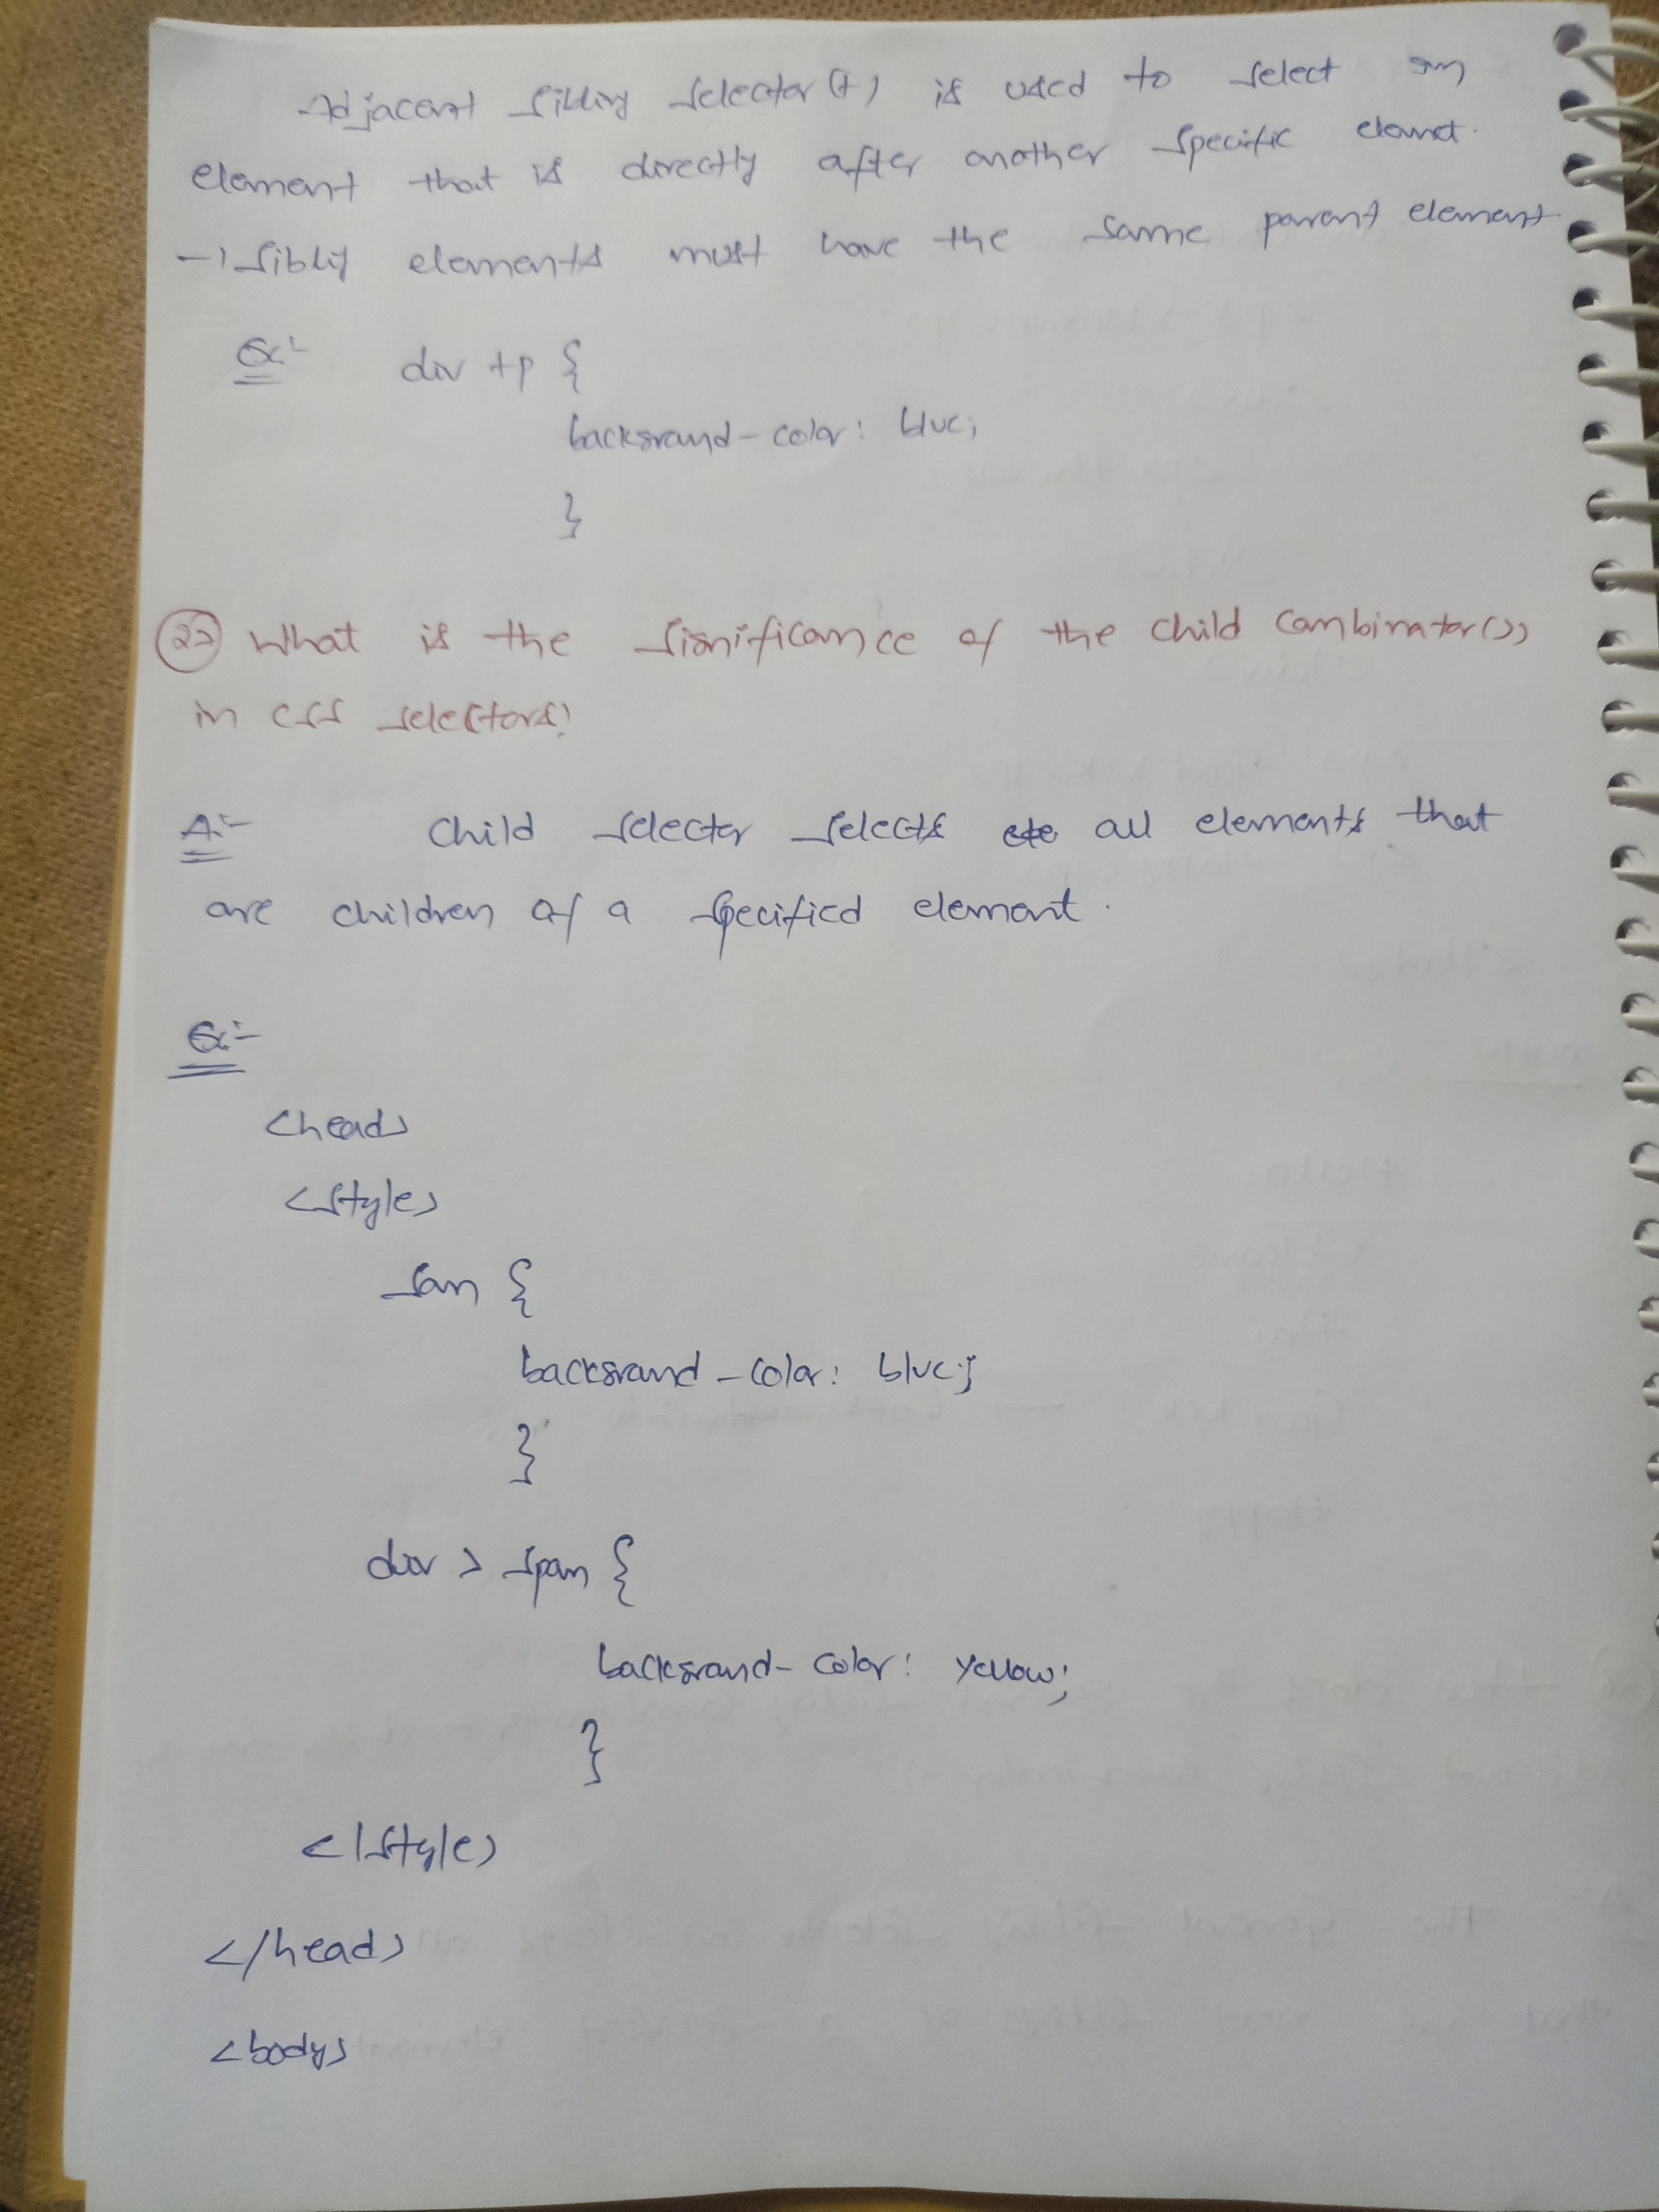 Adjacent Sibling Selector (+) is used to select an
element that is directly after another specific element.
→ Sibling elements must have the same parent element.
Ex:-
div +p {
background-color: blue;
}
27 What is the significance of the child combinator(>)
in CSS selectors?
A:- Child selector selects all elements that
are children of a specified element.
Ex:-
<head>
<style>
san {
background-color: blue;
}
div > span {
background-color: yellow;
}
</style>
</head>
<body>